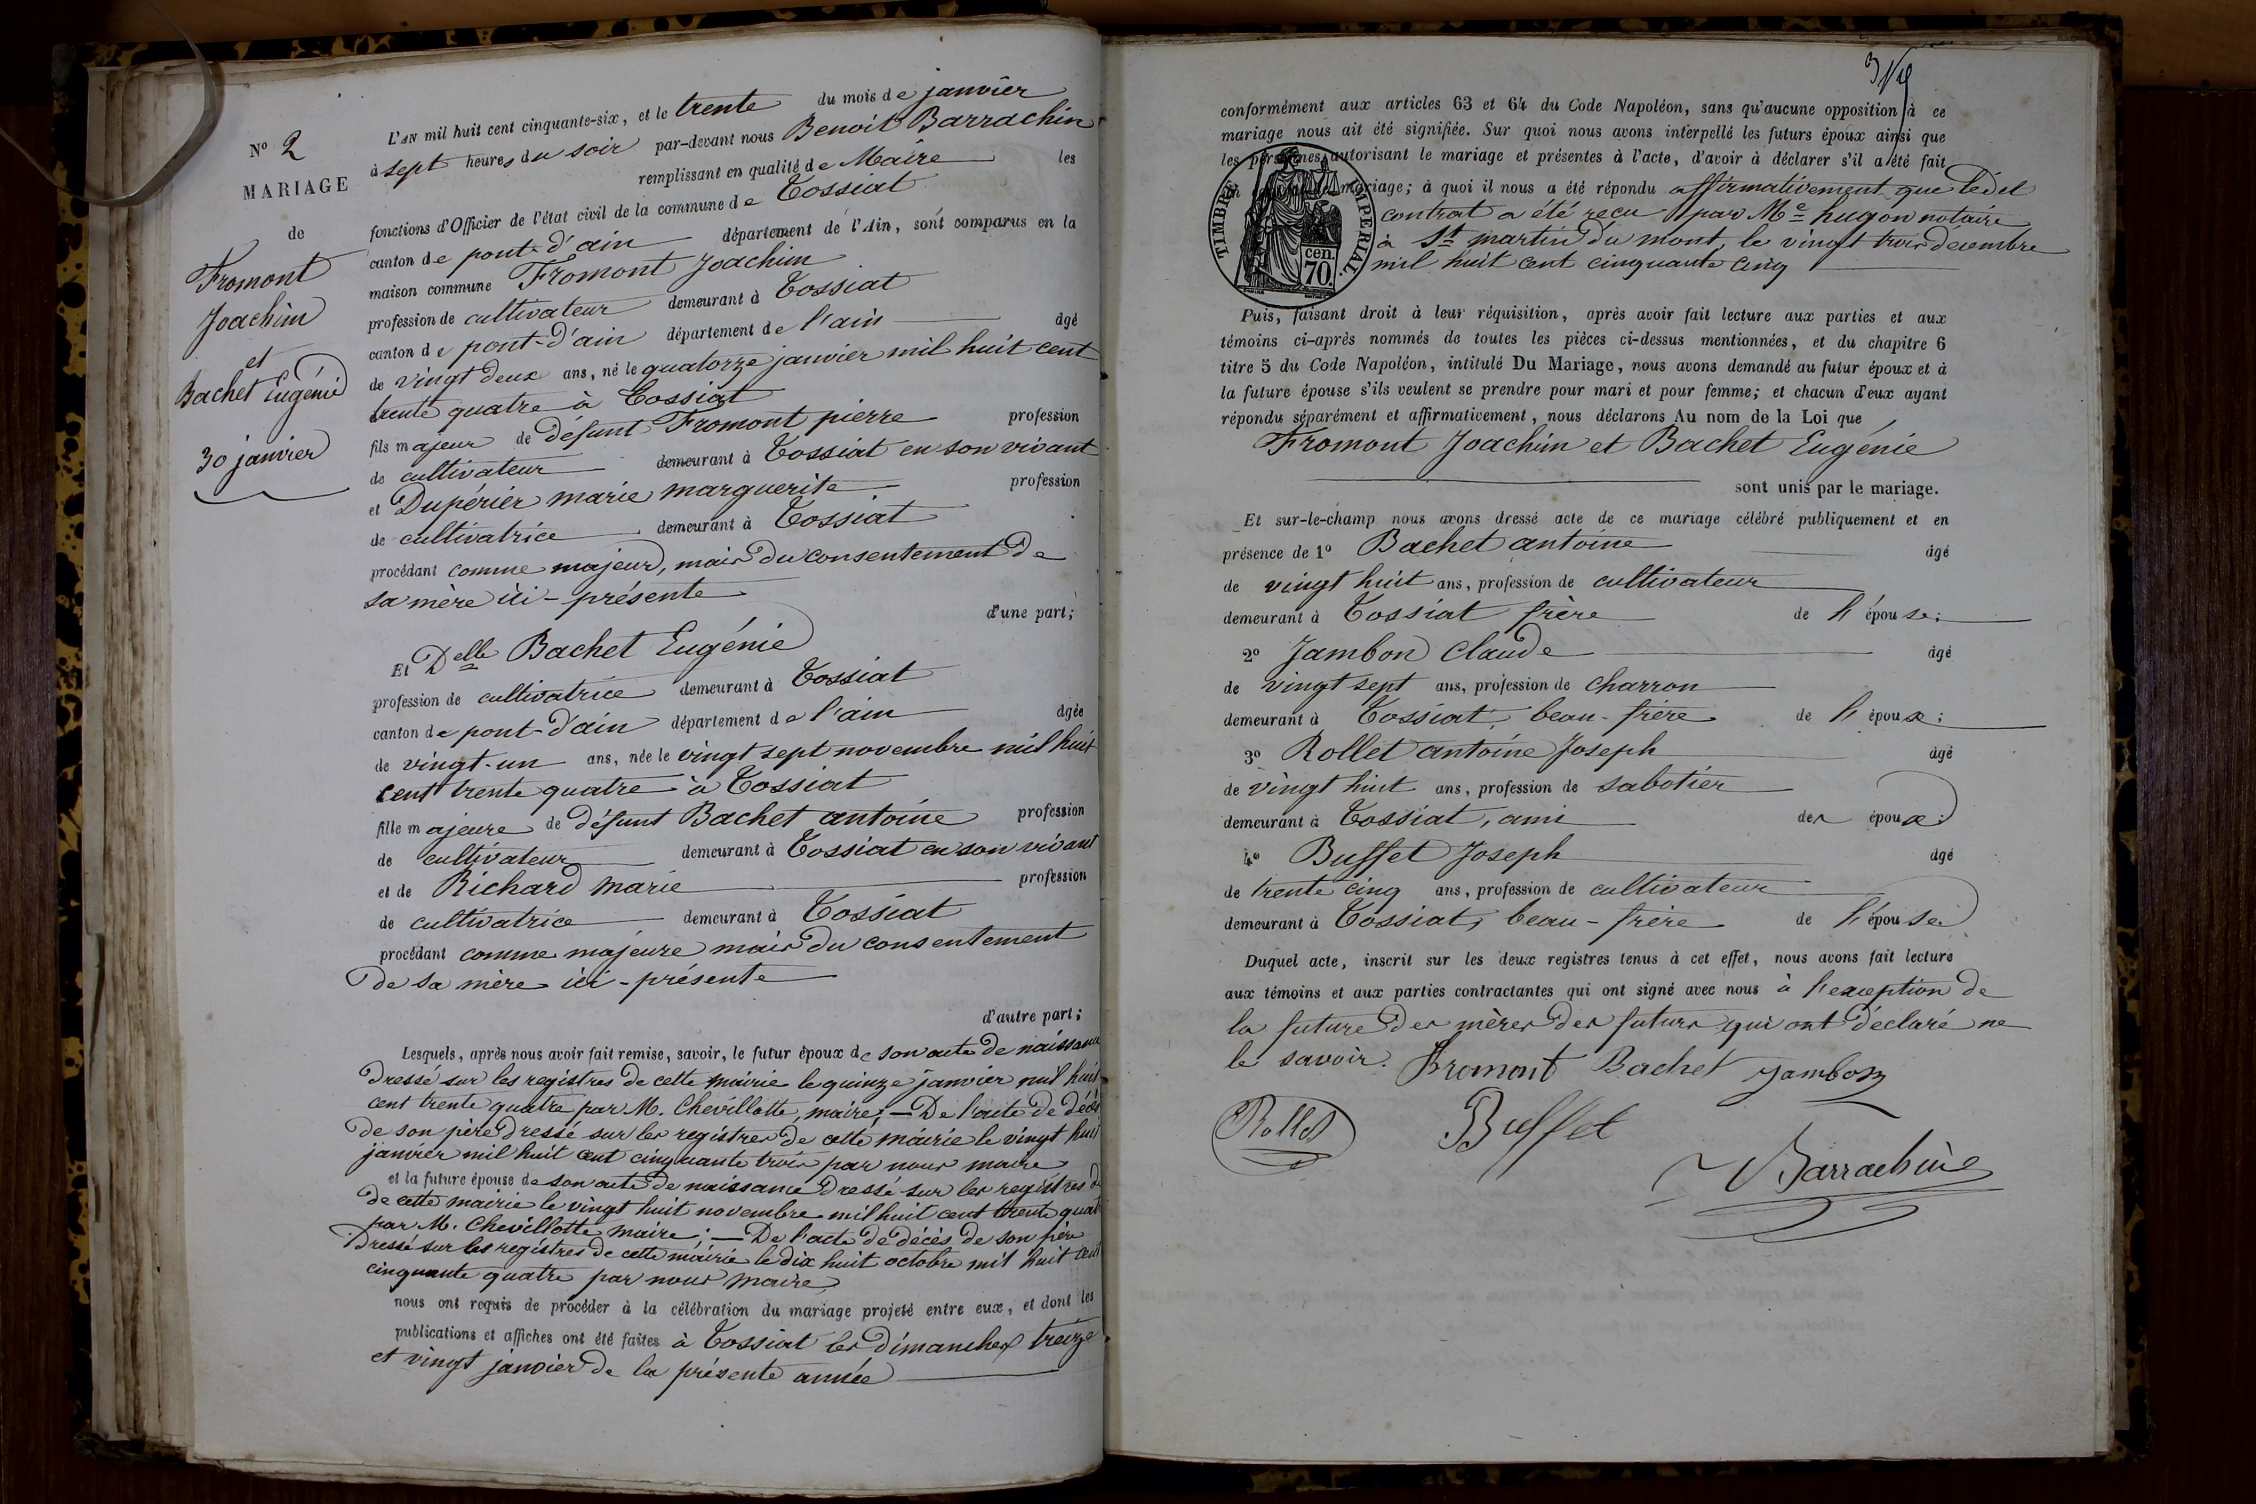 N° 2
MARIAGE
de
Fromont
Joachim
et
Bachet Eugénie
30 janvier
L'AN mil huit cent cinquante-six, et le trente du mois de janvier
à sept heures du soir par-devant nous Benoit Barrachin
remplissant en qualité de Maire les
fonctions d'Officier de l'état civil de la commune de Tossiat
canton de pont-d'ain département de l'Ain, sont comparus en la
maison commune Fromont Joachim
profession de cultivateur demeurant à Tossiat
canton de pont-d'ain département de l'ain âgé
de vingt deux ans, né le quatorze janvier mil huit cent
trente quatre à Tossiat
fils majeur de défunt Fromont pierre profession
de cultivateur demeurant à Tossiat en son vivant
et Dupérier marie marguerite profession
de cultivatrice demeurant à Tossiat
procédant comme majeur, mais du consentement de
sa mère ici-présente
d'une part;
Et Delle Bachet Eugénie
profession de cultivatrice demeurant à Tossiat
canton de pont-d'ain département de l'ain âgée
de vingt-un ans, née le vingt sept novembre mil huit
cent trente quatre à Tossiat
fille majeure de défunt Bachet antoine profession
de cultivateur demeurant à Tossiat en son vivant
et de Richard marie profession
de cultivatrice demeurant à Tossiat
procédant comme majeure mais du consentement
de sa mère ici-présente
d'autre part;
Lesquels, après nous avoir fait remise, savoir, le futur époux de son acte de naissance
dressé sur les registres de cette mairie le quinze janvier mil huit
cent trente quatre par M. Chevillotte, maire; — De l'acte de décès
de son père dressé sur les registres de cette mairie le vingt huit
janvier mil huit cent cinquante trois par nous maire
et la future épouse de son acte de naissance dressé sur les registres
de cette mairie le vingt huit novembre mil huit cent trente quat
par M. Chevillotte maire; — De l'acte de décès de son père
Dressé sur les registres de cette mairie le dix huit octobre mil huit cent
cinquante quatre par nous maire
nous ont requis de procéder à la célébration du mariage projeté entre eux, et dont les
publications et affiches ont été faites à Tossiat les dimanches treize
et vingt janvier de la présente année
conformément aux articles 63 et 64 du Code Napoléon, sans qu'aucune opposition à ce
mariage nous ait été signifiée. Sur quoi nous avons interpellé les futurs époux ainsi que
les personnes autorisant le mariage et présentes à l'acte, d'avoir à déclarer s'il a été fait
mariage; à quoi il nous a été répondu affirmativement que led.
contrat a été reçu par Me hugon notaire
à St martin du mont, le vingt trois décembre
mil huit cent cinquante cinq
TIMBRE IMPERIAL.
70 cen.
Puis, faisant droit à leur réquisition, après avoir fait lecture aux parties et aux
témoins ci-après nommés de toutes les pièces ci-dessus mentionnées, et du chapitre 6
titre 5 du Code Napoléon, intitulé Du Mariage, nous avons demandé au futur époux et à
la future épouse s'ils veulent se prendre pour mari et pour femme; et chacun d'eux ayant
répondu séparément et affirmativement, nous déclarons Au nom de la Loi que
Fromont Joachim et Bachet Eugénie
sont unis par le mariage.
Et sur-le-champ nous avons dressé acte de ce mariage célébré publiquement et en
présence de 1° Bachet antoine âgé
de vingt huit ans, profession de cultivateur
demeurant à Tossiat frère de l'épouse;
2° Jambon Claude âgé
de vingt sept ans, profession de charron
demeurant à Tossiat, beau-frère de l'époux;
3° Rollet antoine Joseph âgé
de vingt huit ans, profession de sabotier
demeurant à Tossiat, ami des époux;
4° Buffet Joseph âgé
de trente cinq ans, profession de cultivateur
demeurant à Tossiat, beau-frère de l'épouse.
Duquel acte, inscrit sur les deux registres tenus à cet effet, nous avons fait lecture
aux témoins et aux parties contractantes qui ont signé avec nous à l'exception de
la future des mères des futurs qui ont déclaré ne
le savoir. Fromont Bachet Jambon
Rollet Buffet
Barrachin